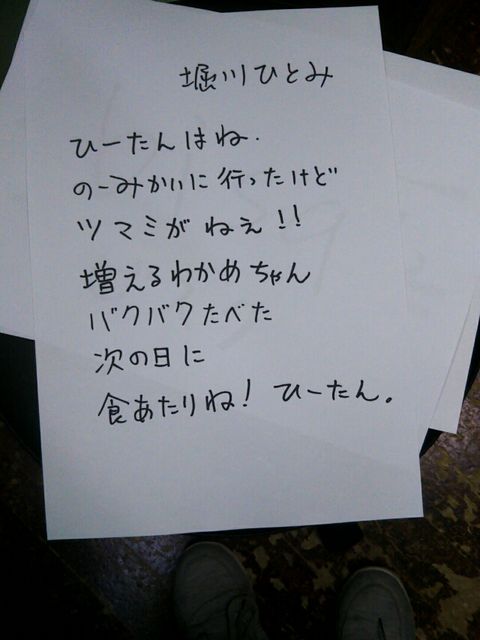 堀川ひとみ
ひーたんはね.
のーみかいに行ったけど
ツマミがねぇ!!
増えるわかめちゃん
バクバクたべた
次の日に
食あたりね! ひーたん。